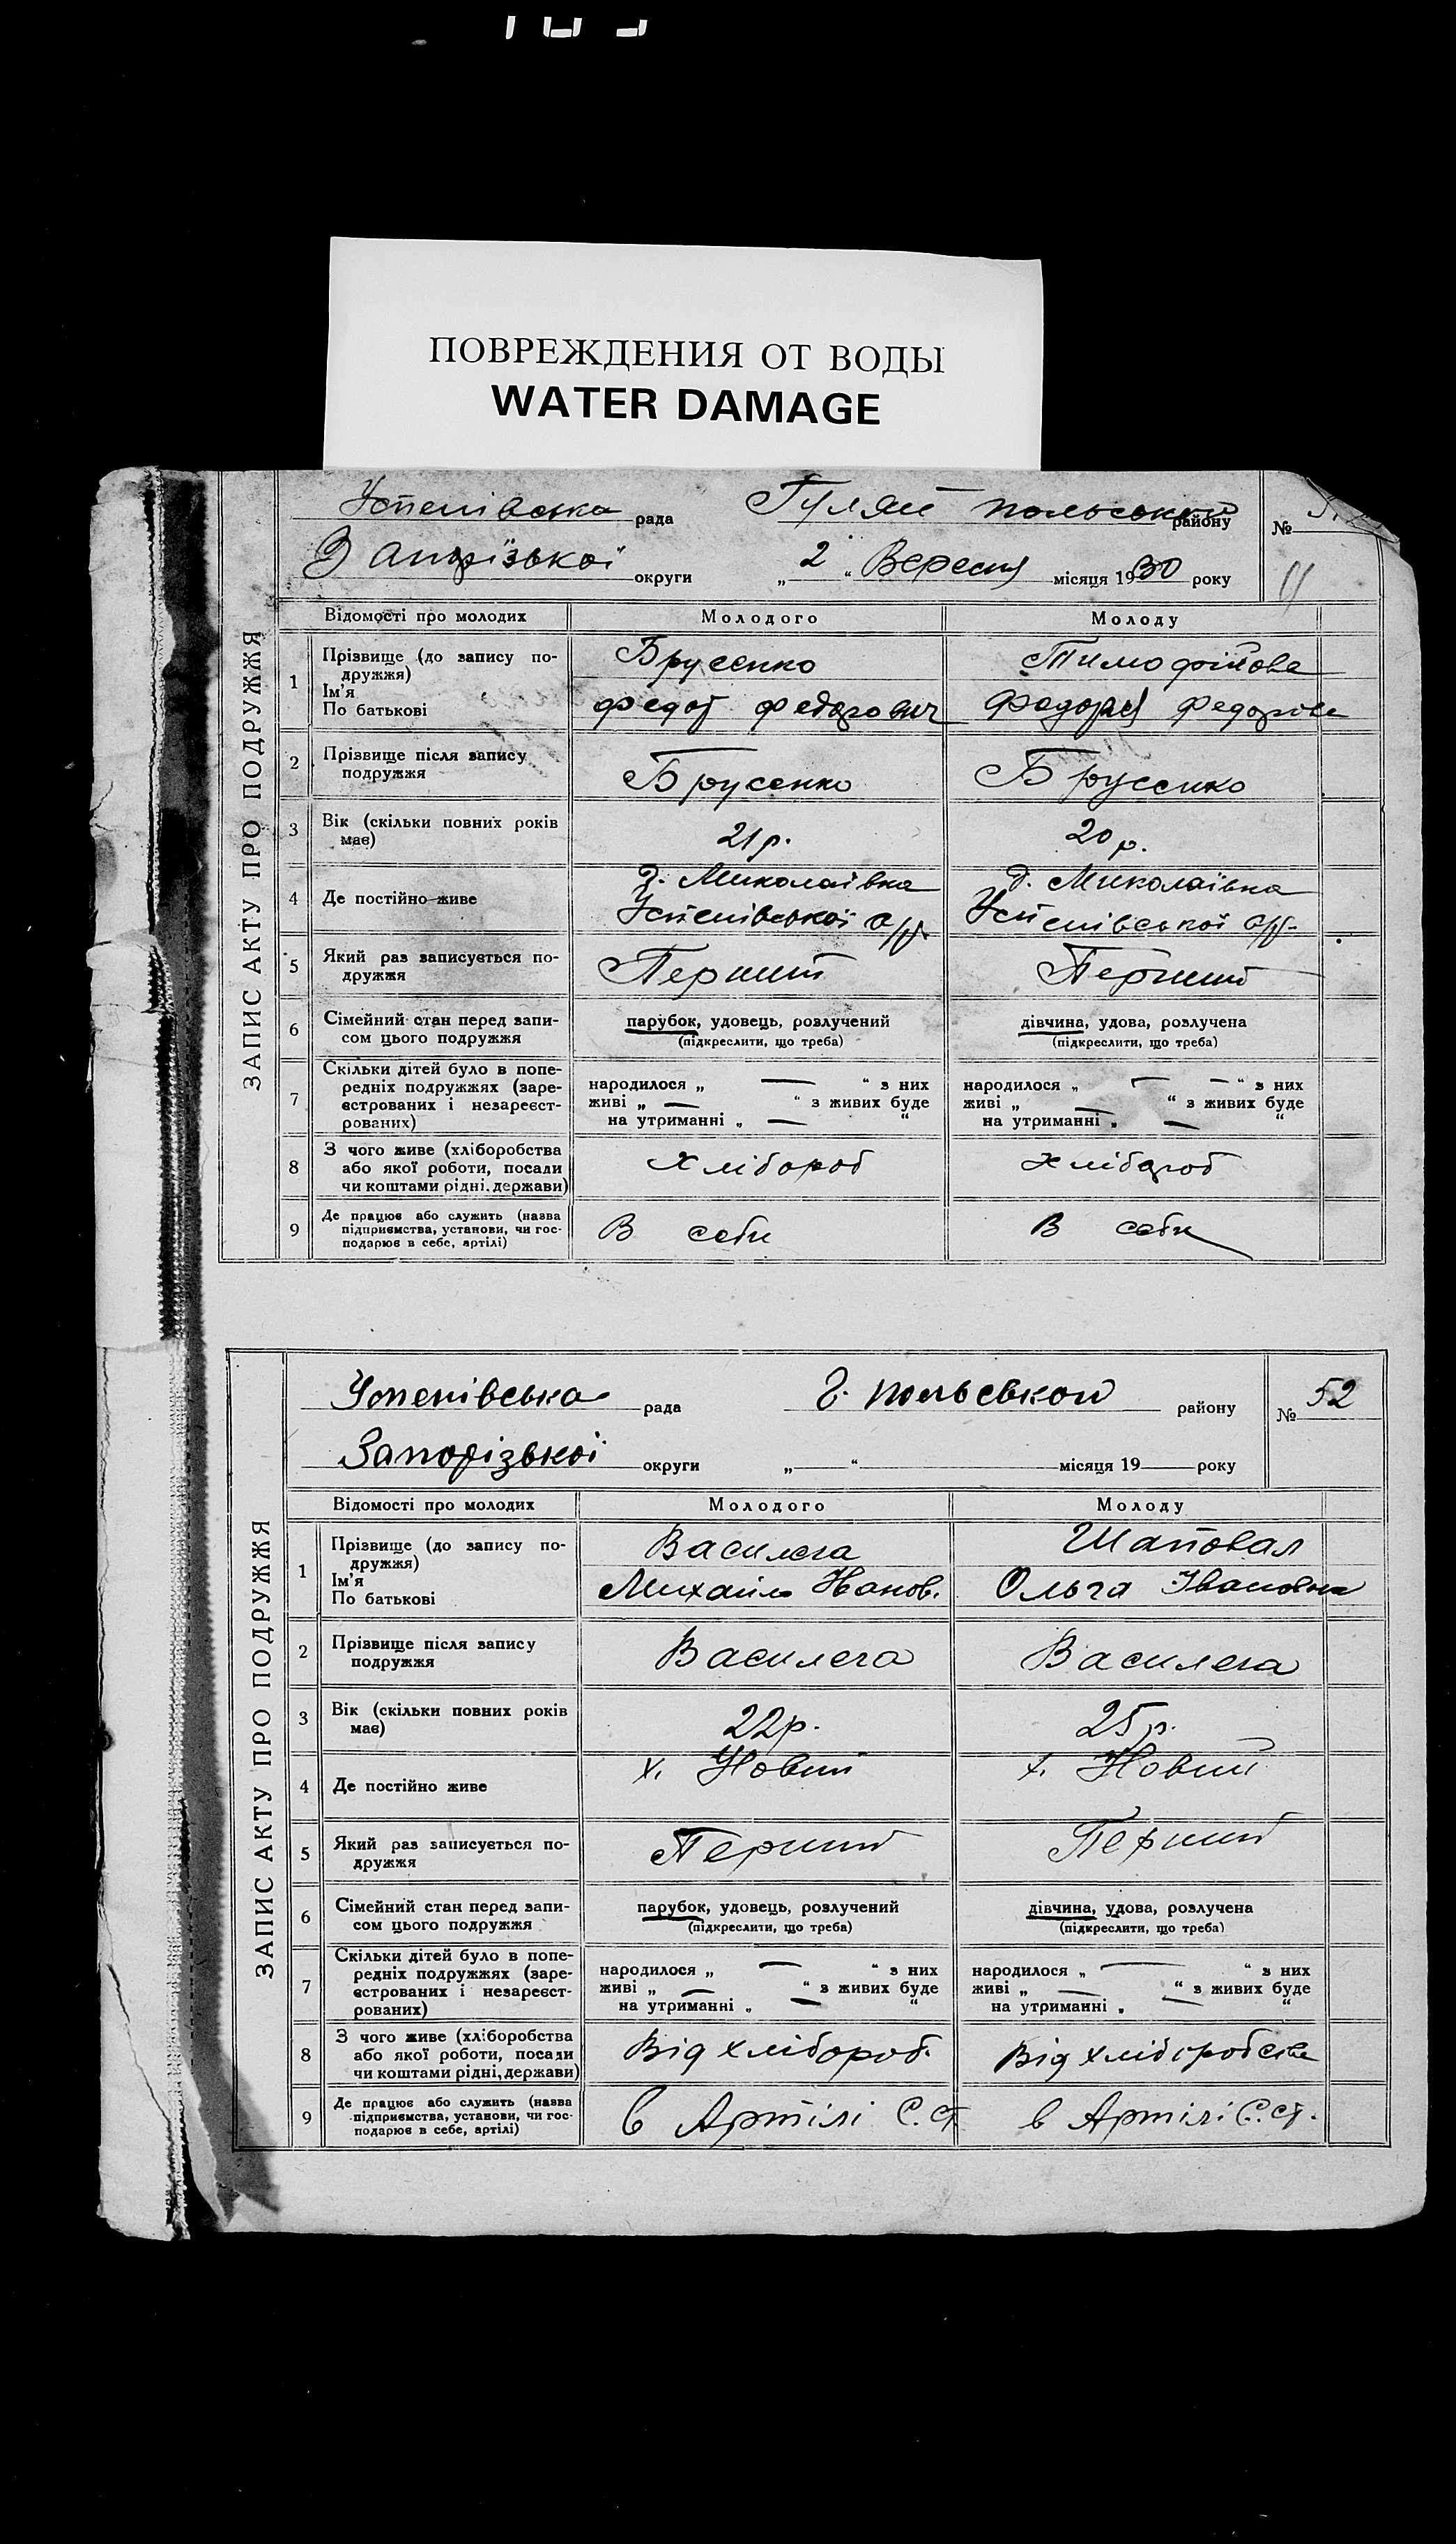 ПОВРЕЖДЕНИЯ ОТ ВОДЫ
WATER DAMAGE
ЗАПИС АКТУ ПРО ПОДРУЖЖЯ
Успенівська рада Гуляй польський району №
округи „2“ Вересня місяця 1930 року
Відомості про молодих Молодого Молоду
1 Прізвище (до запису по-
дружжя)
Ім'я
По батькові
Брусенко Тимофійова
Федот Федорович Федорова
2 Прізвище після запису
подружжя
Брусенко Брусенко
3 Вік (скільки повних років
має)
21 р. 20 р.
4 Де постійно живе
Миколаівка д. Миколаівка
Успенівської с/р. Успенівської с/р.
5 Який раз записується по-
дружжя
Перший Перший
6 Сімейний стан перед запи-
сом цього подружжя
парубок, удовець, розлучений дівчина, удова, розлучена
(підкреслити, що треба) (підкреслити, що треба)
7 Скільки дітей було в попе-
редніх подружжях (заре-
єстрованих і незареєст-
рованих)
народилося „ — “ з них народилося „ — — “ з них
живі „ — “ з живих буде живі „ — “ з живих буде
на утриманні „ — “ на утриманні „ — “
8 З чого живе (хліборобства
або якої роботи, посади
чи коштами рідні, держави)
Хлібороб хлібороб
9 Де працює або служить (назва
підприємства, установи, чи гос-
подарює в себе, артілі)
В себи В себи
ЗАПИС АКТУ ПРО ПОДРУЖЖЯ
Успенівська рада Г. польськой району № 52
Запорізькоі округи „ “ місяця 19 року
Відомості про молодих Молодого Молоду
1 Прізвище (до запису по-
дружжя)
Ім'я
По батькові
Василега Шаповал
Михайло Ольга Івановна
2 Прізвище після запису
подружжя
Василега Василега
3 Вік (скільки повних років
має)
22 р. 25 р.
4 Де постійно живе
х. Новий х. Новий
5 Який раз записується по-
дружжя
Перший Перший
6 Сімейний стан перед запи-
сом цього подружжя
парубок, удовець, розлучений дівчина, удова, розлучена
(підкреслити, що треба) (підкреслити, що треба)
7 Скільки дітей було в попе-
редніх подружжях (заре-
єстрованих і незареєст-
рованих)
народилося „ — “ з них народилося „ — “ з них
живі „ — “ з живих буде живі „ — “ з живих буде
на утриманні „ — “ на утриманні „ — “
8 З чого живе (хліборобства
або якої роботи, посади
чи коштами рідні, держави)
Від хлібороб. Від хліборобства
9 Де працює або служить (назва
підприємства, установи, чи гос-
подарює в себе, артілі)
в Артілі С.ст. в Артілі С.ст.